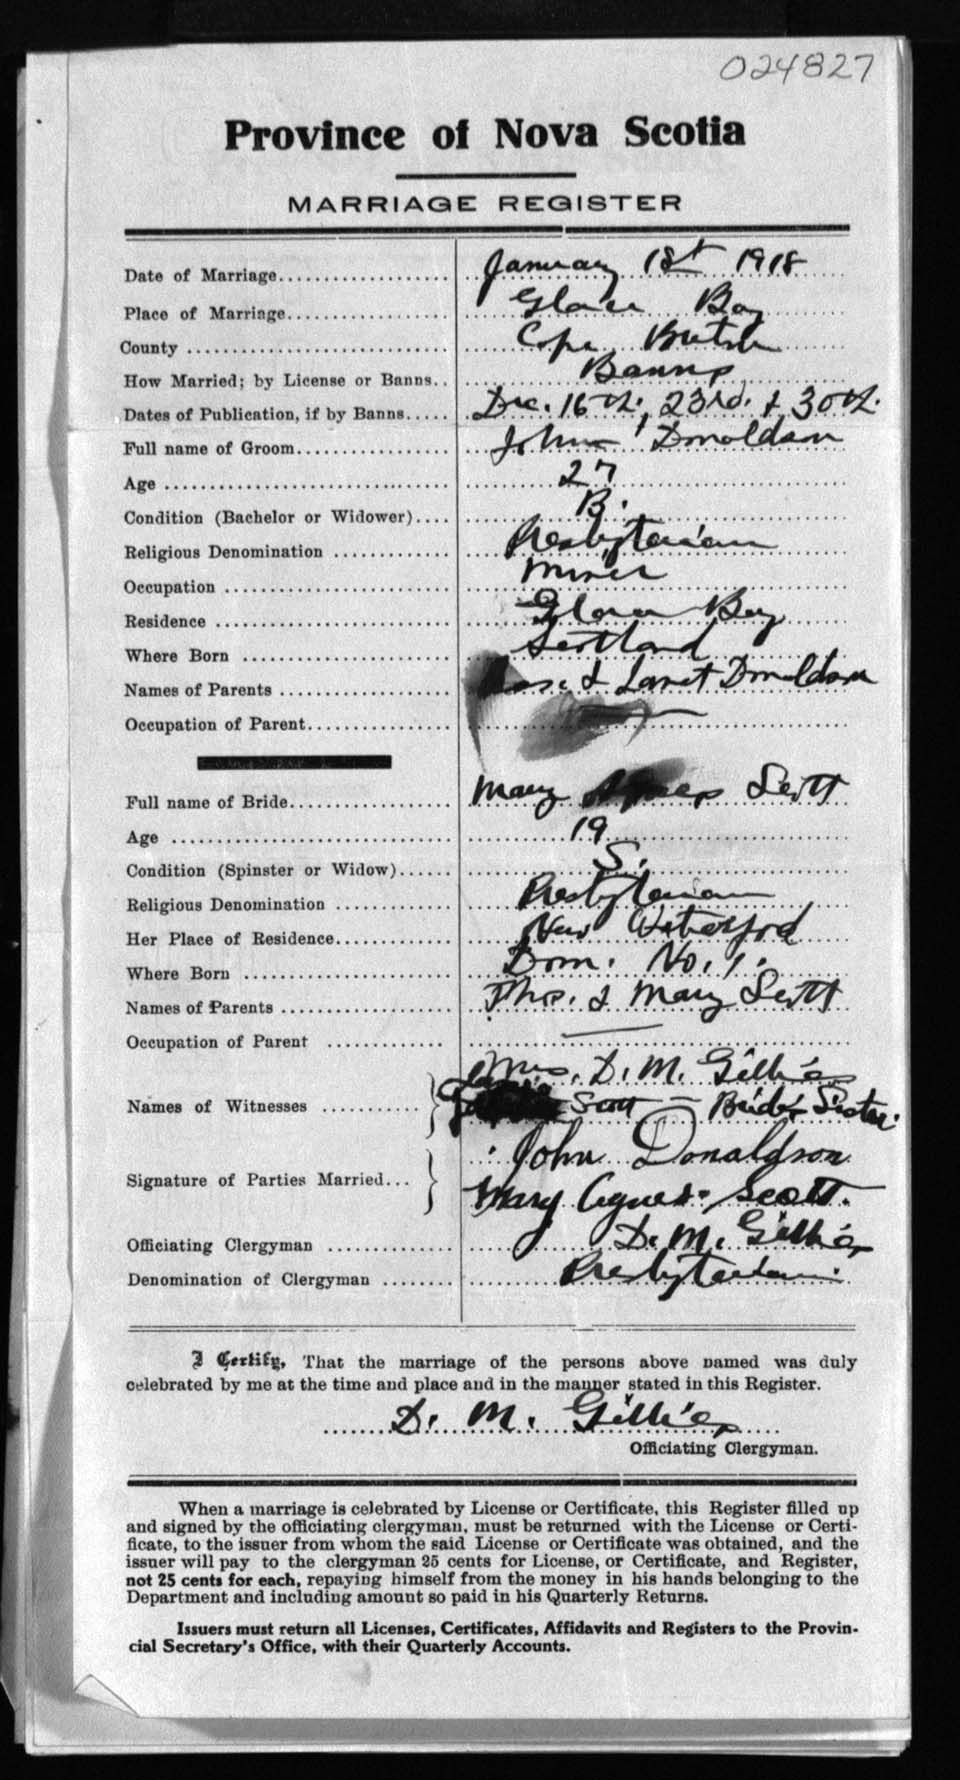 024827
Province of Nova Scotia
MARRIAGE REGISTER
Date of Marriage January 1st 1918
Place of Marriage Glace Bay
County Cape Breton
How Married; by License or Banns Banns
Dates of Publication, if by Banns Dec. 16th, 23rd. & 30th.
Full name of Groom John Donaldson
Age 27
Condition (Bachelor or Widower) B.
Religious Denomination Presbyterian
Occupation Miner
Residence Glace Bay
Where Born Scotland
Names of Parents & Janet Donaldson
Occupation of Parent —
Full name of Bride Mary Agnes Scott
Age 19
Condition (Spinster or Widow) S.
Religious Denomination Presbyterian
Her Place of Residence New Waterford
Where Born Dom. No. 1.
Names of Parents Thos. & Mary Scott
Occupation of Parent —
Mrs. D. M. Gillies
Names of Witnesses Scott — Bride's Sister.
John Donaldson
Signature of Parties Married
Mary Agnes Scott.
Officiating Clergyman D. M. Gillies
Denomination of Clergyman Presbyterian.
I Certify, That the marriage of the persons above named was duly
celebrated by me at the time and place and in the manner stated in this Register.
D. M. Gillies
Officiating Clergyman.
When a marriage is celebrated by License or Certificate, this Register filled up
and signed by the officiating clergyman, must be returned with the License or Certi-
ficate, to the issuer from whom the said License or Certificate was obtained, and the
issuer will pay to the clergyman 25 cents for License, or Certificate, and Register,
not 25 cents for each, repaying himself from the money in his hands belonging to the
Department and including amount so paid in his Quarterly Returns.
Issuers must return all Licenses, Certificates, Affidavits and Registers to the Provin-
cial Secretary's Office, with their Quarterly Accounts.